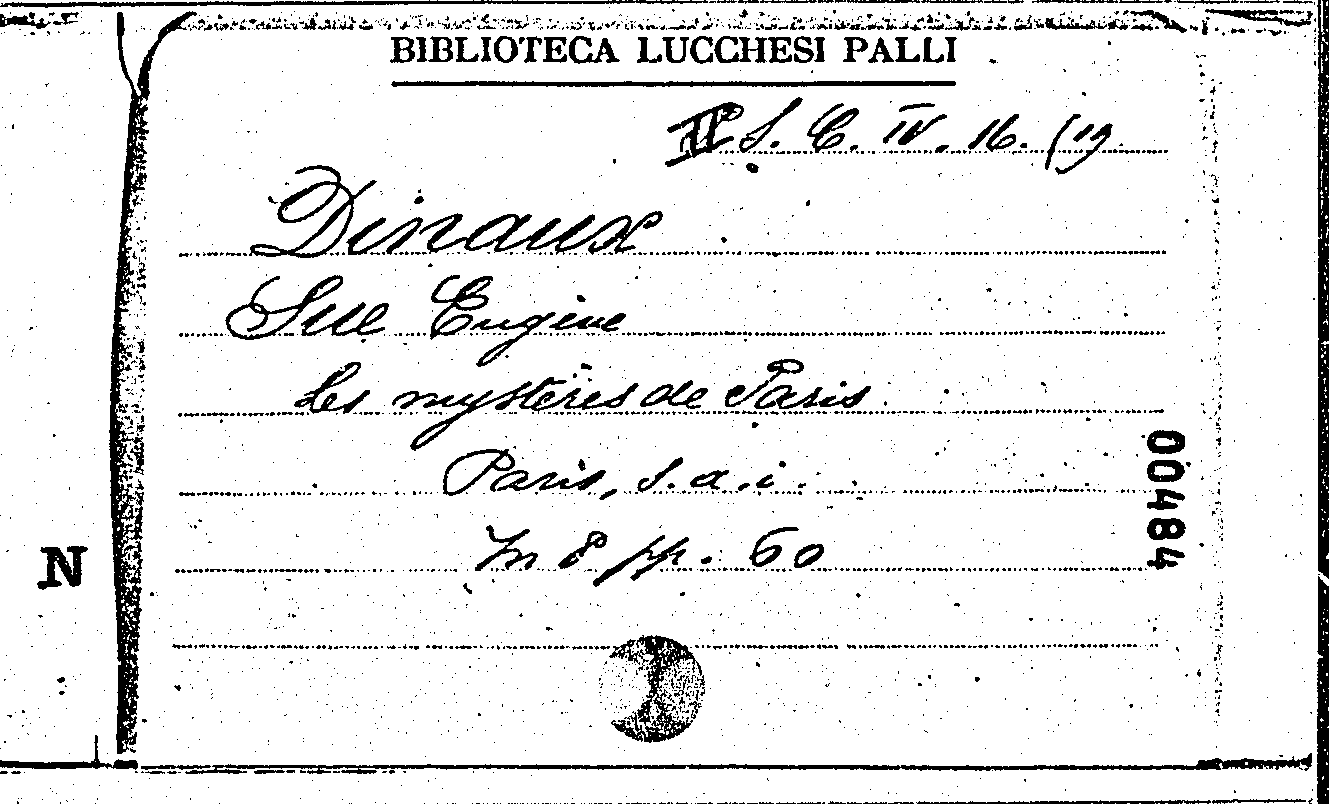 BIBLIOTECA LUCCHESI PALLI
II S. C. IV. 16. (19
Dinaux
Sue Eugène
Les mystères de Paris
Paris, s. a. i.
In 8 pp. 60
00484
N